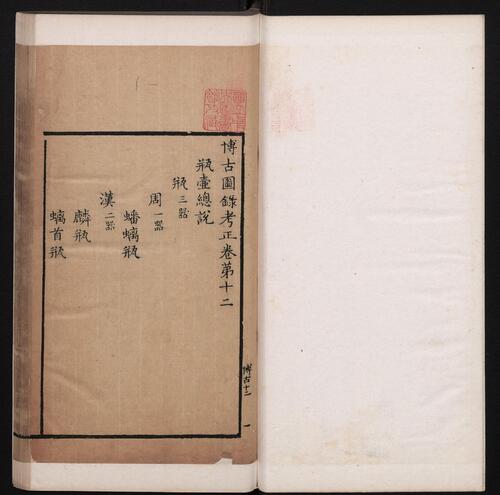 博古圖錄考正卷第十二
瓶壷總說
瓶三器
周一器
蟠螭瓶
漢二器
麟瓶
螭首瓶
博古十二
一